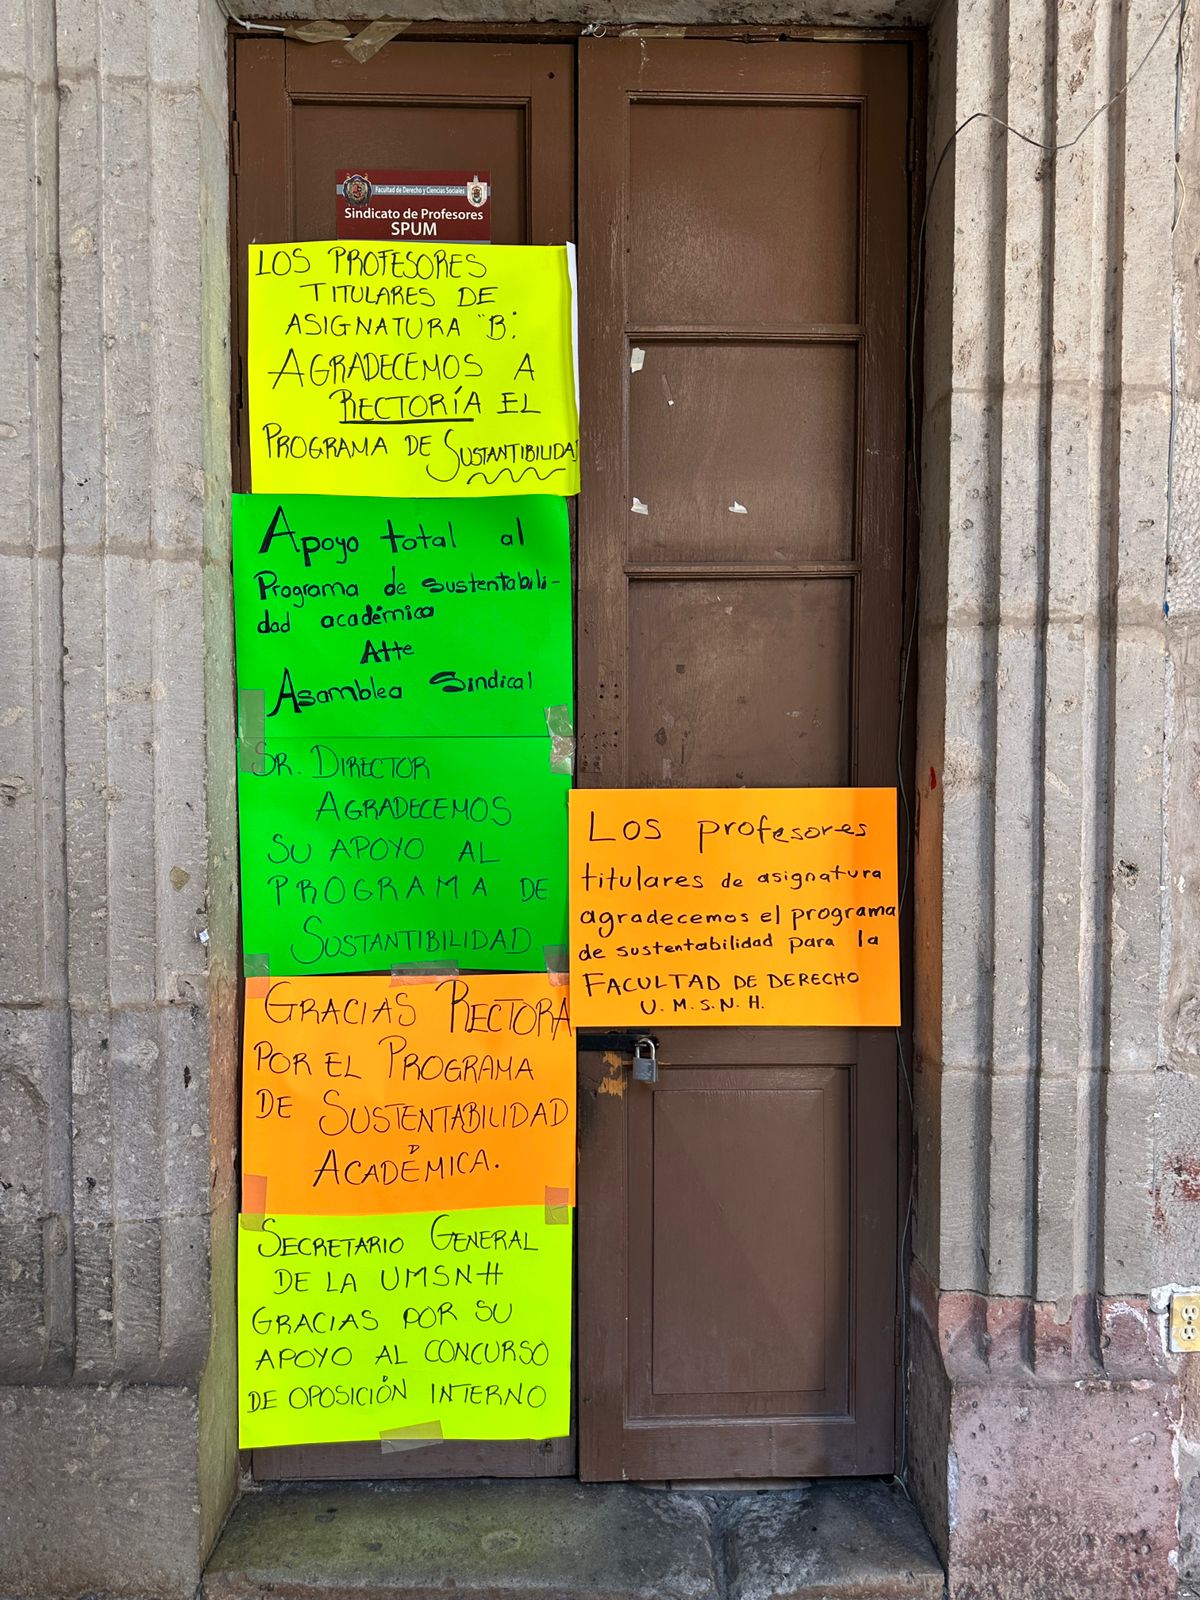 Facultad de Derecho y Ciencias Sociales
Sindicato de Profesores
SPUM
LOS PROFESORES
TITULARES DE
ASIGNATURA "B",
AGRADECEMOS A
RECTORÍA EL
PROGRAMA DE SUSTANTIBILIDAD
Apoyo total al
Programa de sustentabili-
dad académica
Atte
Asamblea Sindical
SR. DIRECTOR
AGRADECEMOS
SU APOYO AL
PROGRAMA DE
SOSTANTIBILIDAD
GRACIAS RECTORA
POR EL PROGRAMA
DE SUSTENTABILIDAD
ACADÉMICA.
SECRETARIO GENERAL
DE LA UMSNH
GRACIAS POR SU
APOYO AL CONCURSO
DE OPOSICIÓN INTERNO
Los profesores
titulares de asignatura
agradecemos el programa
de sustentabilidad para la
FACULTAD DE DERECHO
U. M. S. N. H.